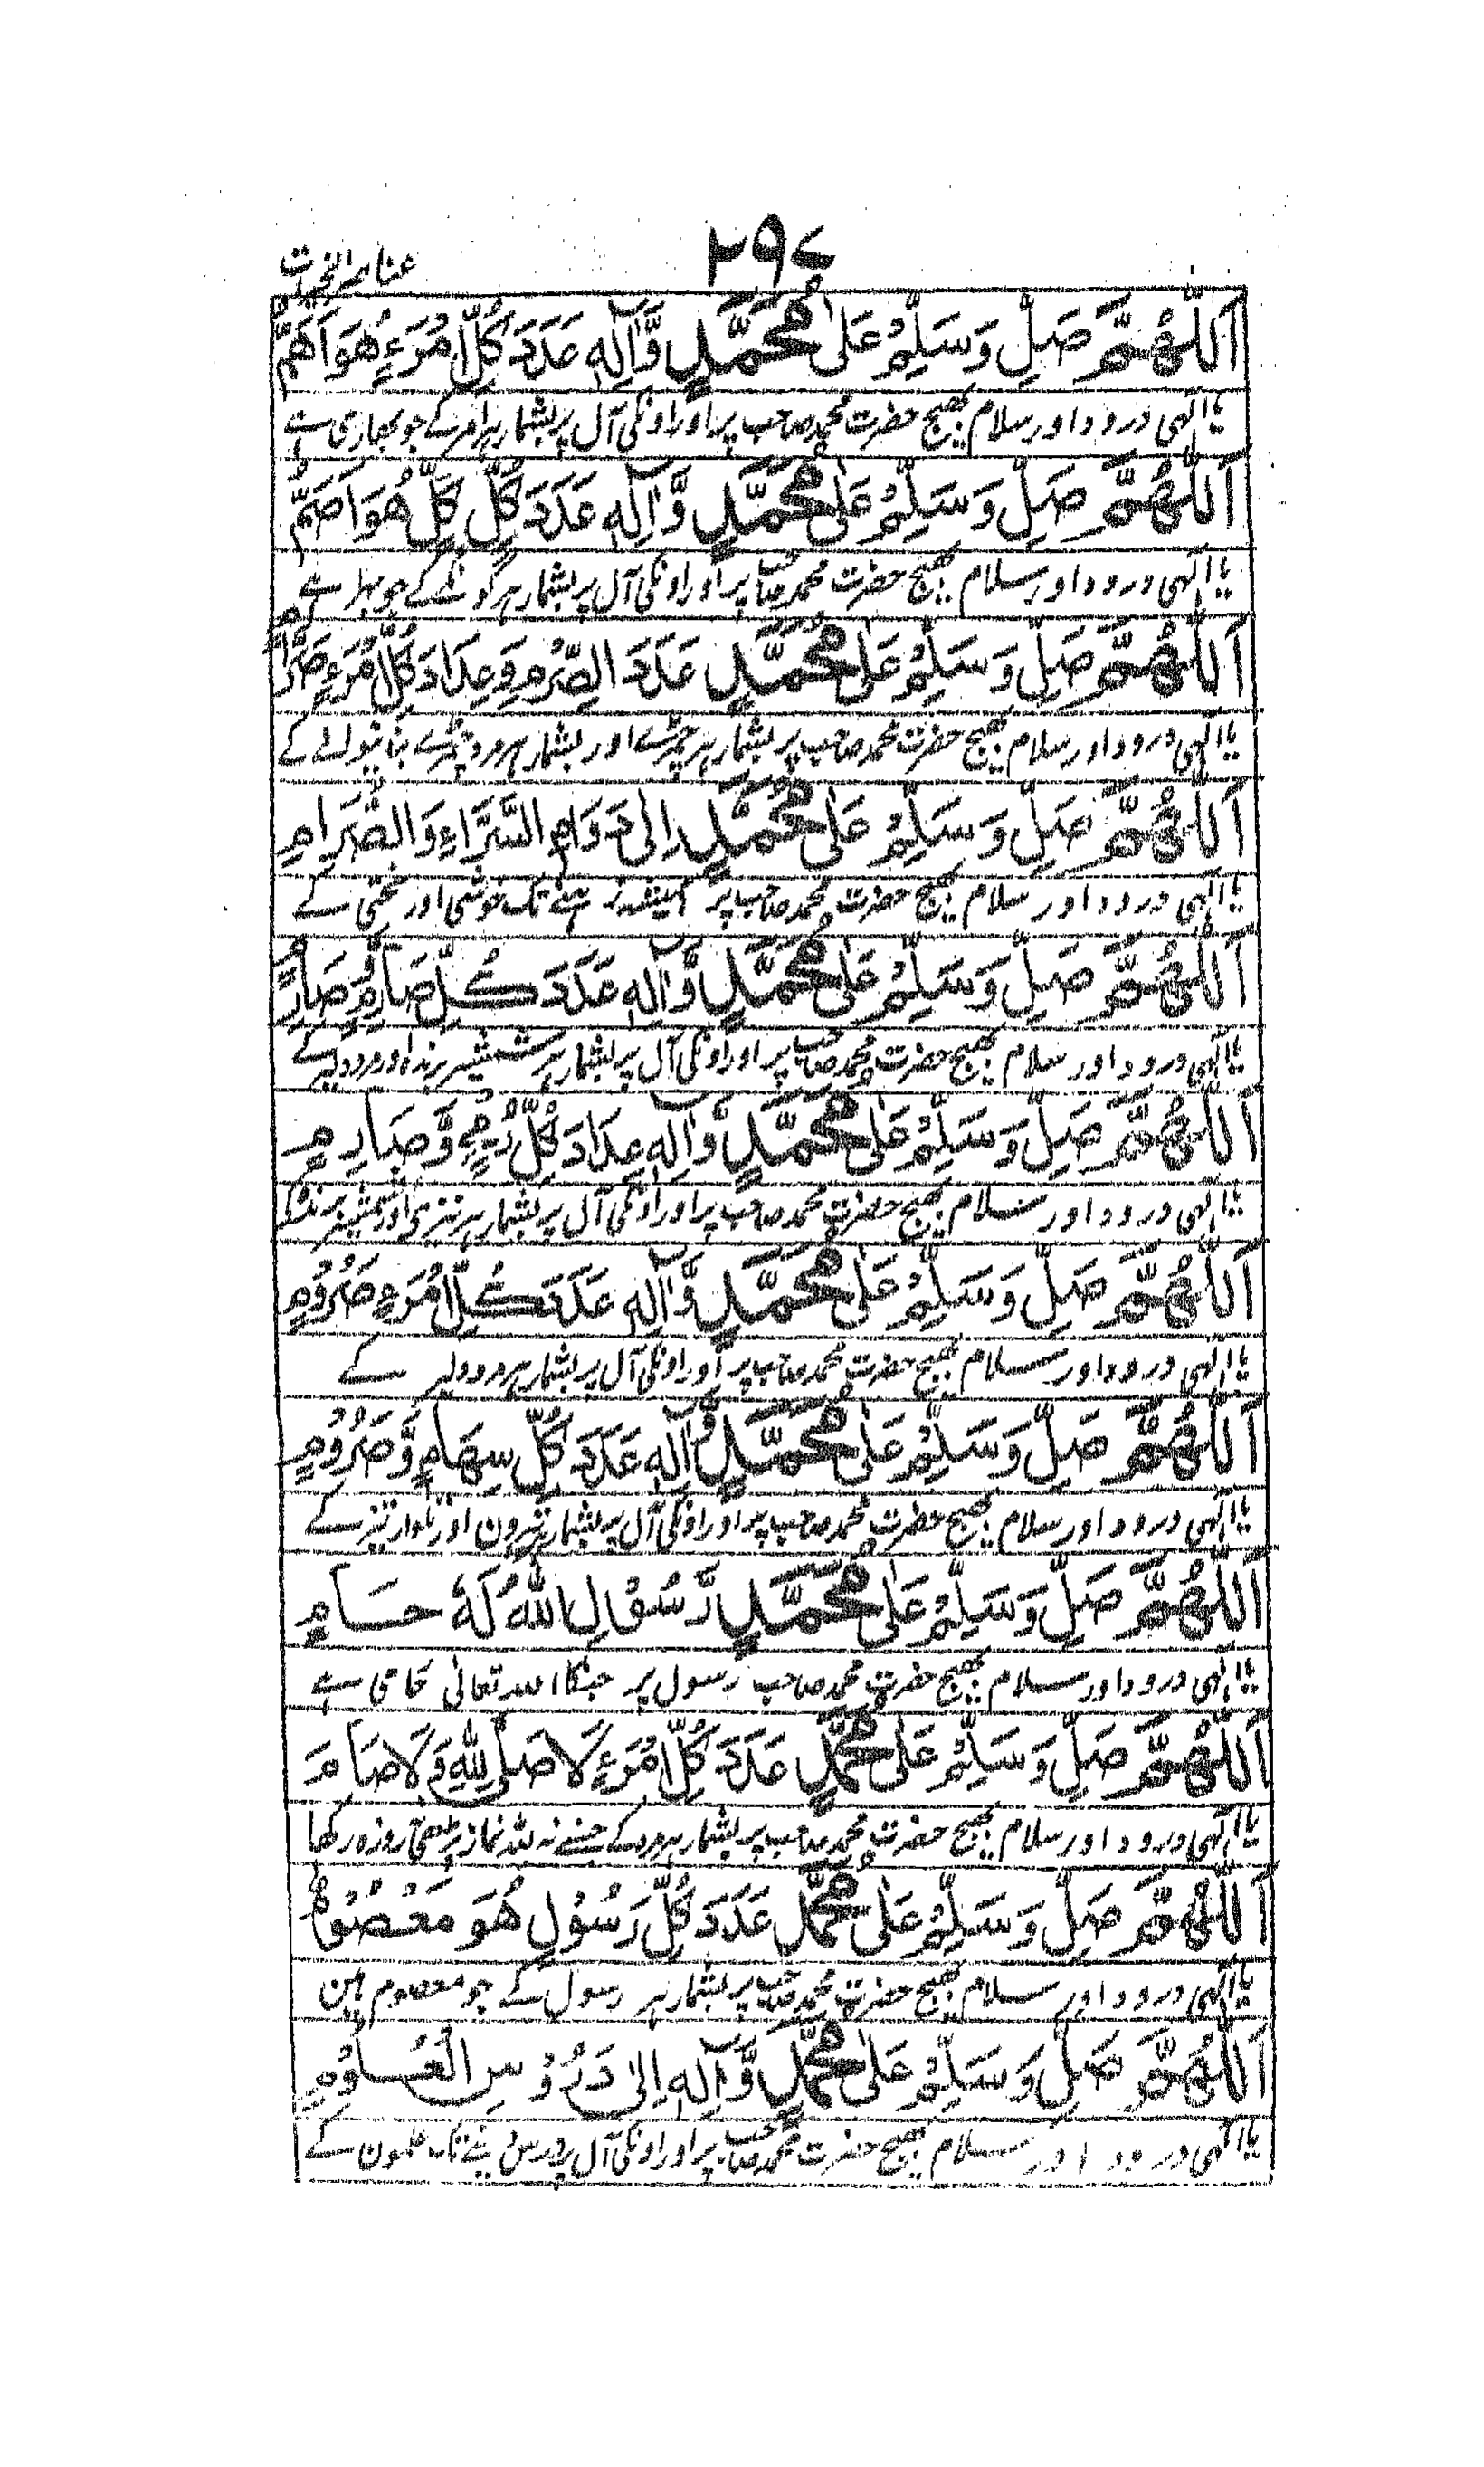 ۲۹۷
عناصر الخیرات
اَللّٰهُمَّ صَلِّ وَسَلِّمْ عَلٰى مُحَمَّدٍ وَّاٰلِهٖ عَدَدَ كُلِّ امْرَءٍ هُوَ اَهَمُّ
یا الٰہی درود اور سلام بھیج حضرت محمد صاحب پر اور اونکی آل پر بشمار ہر امر کے جو بھاری ہے
اَللّٰهُمَّ صَلِّ وَسَلِّمْ عَلٰى مُحَمَّدٍ وَّاٰلِهٖ عَدَدَ كُلِّ كَلٍّ هُوَ اَصَمُّ
یا الٰہی درود اور سلام بھیج حضرت محمد صاحب پر اور اونکی آل پر بشمار ہر گونگے کے جو بہرا ہے
اَللّٰهُمَّ صَلِّ وَسَلِّمْ عَلٰى مُحَمَّدٍ عَدَدَ الصِّرْمِ وَعِدَادَ كُلِّ امْرَءٍ صَرَّامٍ
یا الٰہی درود اور سلام بھیج حضرت محمد صاحب پر بشمار ہر چمڑے اور بشمار ہر مرد چمڑے بنانیوالے کے
اَللّٰهُمَّ صَلِّ وَسَلِّمْ عَلٰى مُحَمَّدٍ اِلٰى دَوَامِ السَّرَّاءِ وَالصَّرَامِ
یا الٰہی درود اور سلام بھیج حضرت محمد صاحب پر ہمیشہ رہنے تک خوشی اور سختی کے
اَللّٰهُمَّ صَلِّ وَسَلِّمْ عَلٰى مُحَمَّدٍ وَّاٰلِهٖ عَدَدَ كُلِّ صَارِمٍ صَارِمٍ
یا الٰہی درود اور سلام بھیج حضرت محمد صاحب پر اور اونکی آل پر بشمار ہر شمشیر برندہ اور مرد دلیر کے
اَللّٰهُمَّ صَلِّ وَسَلِّمْ عَلٰى مُحَمَّدٍ وَّاٰلِهٖ عِدَادَ كُلِّ رُمْحٍ وَّصَارِمٍ
یا الٰہی درود اور سلام بھیج حضرت محمد صاحب پر اور اونکی آل پر بشمار ہر نیزہ اور شمشیر برندہ کے
اَللّٰهُمَّ صَلِّ وَسَلِّمْ عَلٰى مُحَمَّدٍ وَّاٰلِهٖ عَدَدَ كُلِّ امْرَءٍ صَرُوْمٍ
یا الٰہی درود اور سلام بھیج حضرت محمد صاحب پر اور اونکی آل پر بشمار ہر مرد دلیر کے
اَللّٰهُمَّ صَلِّ وَسَلِّمْ عَلٰى مُحَمَّدٍ وَّاٰلِهٖ عَدَدَ كُلِّ سِهَامٍ وَّصَرُوْمٍ
یا الٰہی درود اور سلام بھیج حضرت محمد صاحب پر اور اونکی آل پر بشمار تیرون اور تلوار تیز کے
اَللّٰهُمَّ صَلِّ وَسَلِّمْ عَلٰى مُحَمَّدٍ رَّسُوْلِ اللّٰهُ لَهٗ حَامٍ
یا الٰہی درود اور سلام بھیج حضرت محمد صاحب رسول پر جنکا اللہ تعالی حامی ہے
اَللّٰهُمَّ صَلِّ وَسَلِّمْ عَلٰى مُحَمَّدٍ عَدَدَ كُلِّ امْرَءٍ لَا صَلّٰى لِلّٰهِ وَلَا صَامَ
یا الٰہی درود اور سلام بھیج حضرت محمد صاحب پر بشمار ہر مرد کے جسنے نہ للہ نماز پڑھی نہ روزہ رکھا
اَللّٰهُمَّ صَلِّ وَسَلِّمْ عَلٰى مُحَمَّدٍ عَدَدَ كُلِّ رَسُوْلٍ هُوَ مَعْصُوْمٌ
یا الٰہی درود اور سلام بھیج حضرت محمد صاحب پر بشمار ہر رسول کے جو معصوم ہین
اَللّٰهُمَّ صَلِّ وَسَلِّمْ عَلٰى مُحَمَّدٍ وَّاٰلِهٖ اِلٰى دَرُوْسِ الْعُلُوْمِ
یا الٰہی درود اور سلام بھیج حضرت محمد صاحب پر اور اونکی آل پر درس تک علمون کے